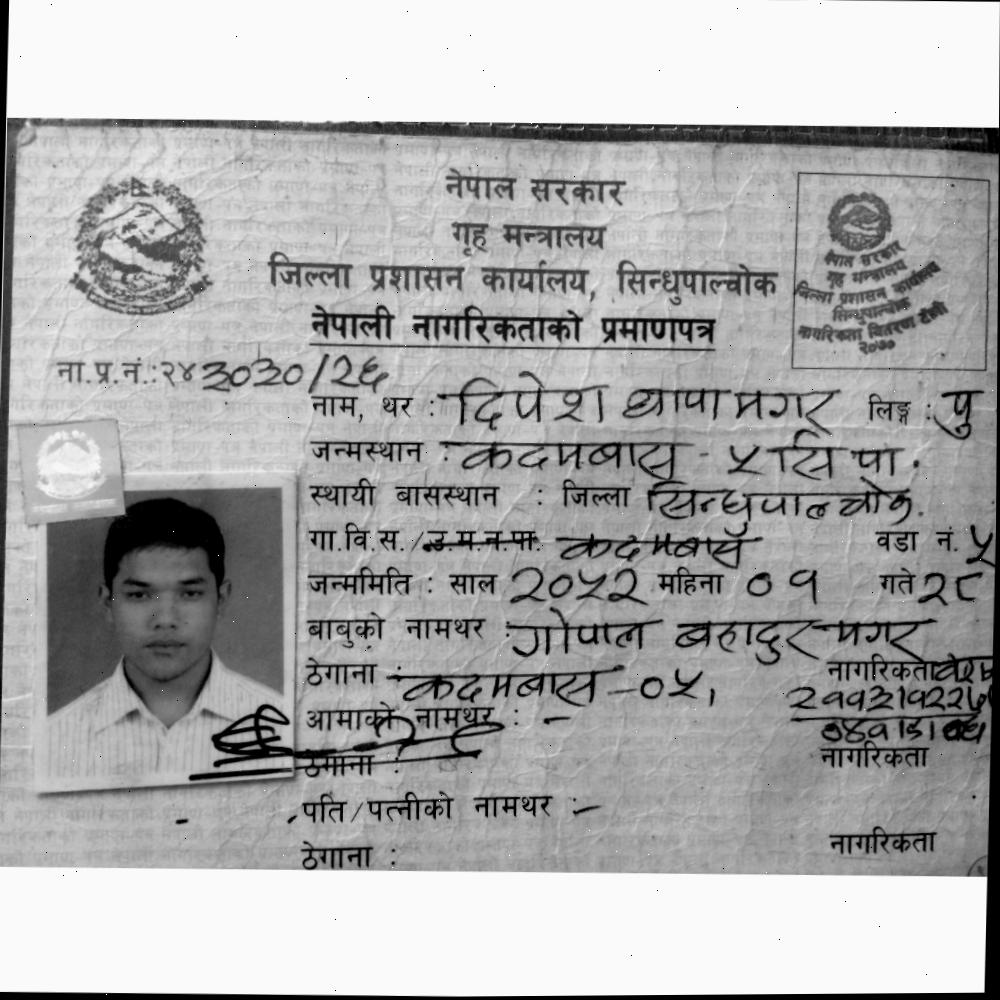 नेपाल सरकार
गृह मन्त्रालय
जिल्ला प्रशासन कार्यालय, सिन्धुपाल्चोक
नेपाली नागरिकताको प्रमाणपत्र
नेपाल सरकार
गृह मन्त्रालय
जिल्ला प्रशासन कार्यालय
सिन्धुपाल्चोक
नागरिकता वितरण टोली
२०७०
ना.प्र.नं.:२४३०३०/२६
नाम, थर : दिपेश थापा मगर लिङ्ग : पु
जन्मस्थान : कदमबास - ५ सि पा.
स्थायी बासस्थान : जिल्ला सिन्धुपाल्चोक.
गा.वि.स./उ.म.न.पा. कदमबास वडा नं. ५
जन्ममिति : साल २०५२ महिना ०१ गते २८
बाबुको नामथर : गोपाल बहादुर मगर
ठेगाना : कदमबास -०५, नागरिकता
आमाको नामथर : -
ठेगाना : नागरिकता
पति/पत्नीको नामथर :-
ठेगाना : नागरिकता